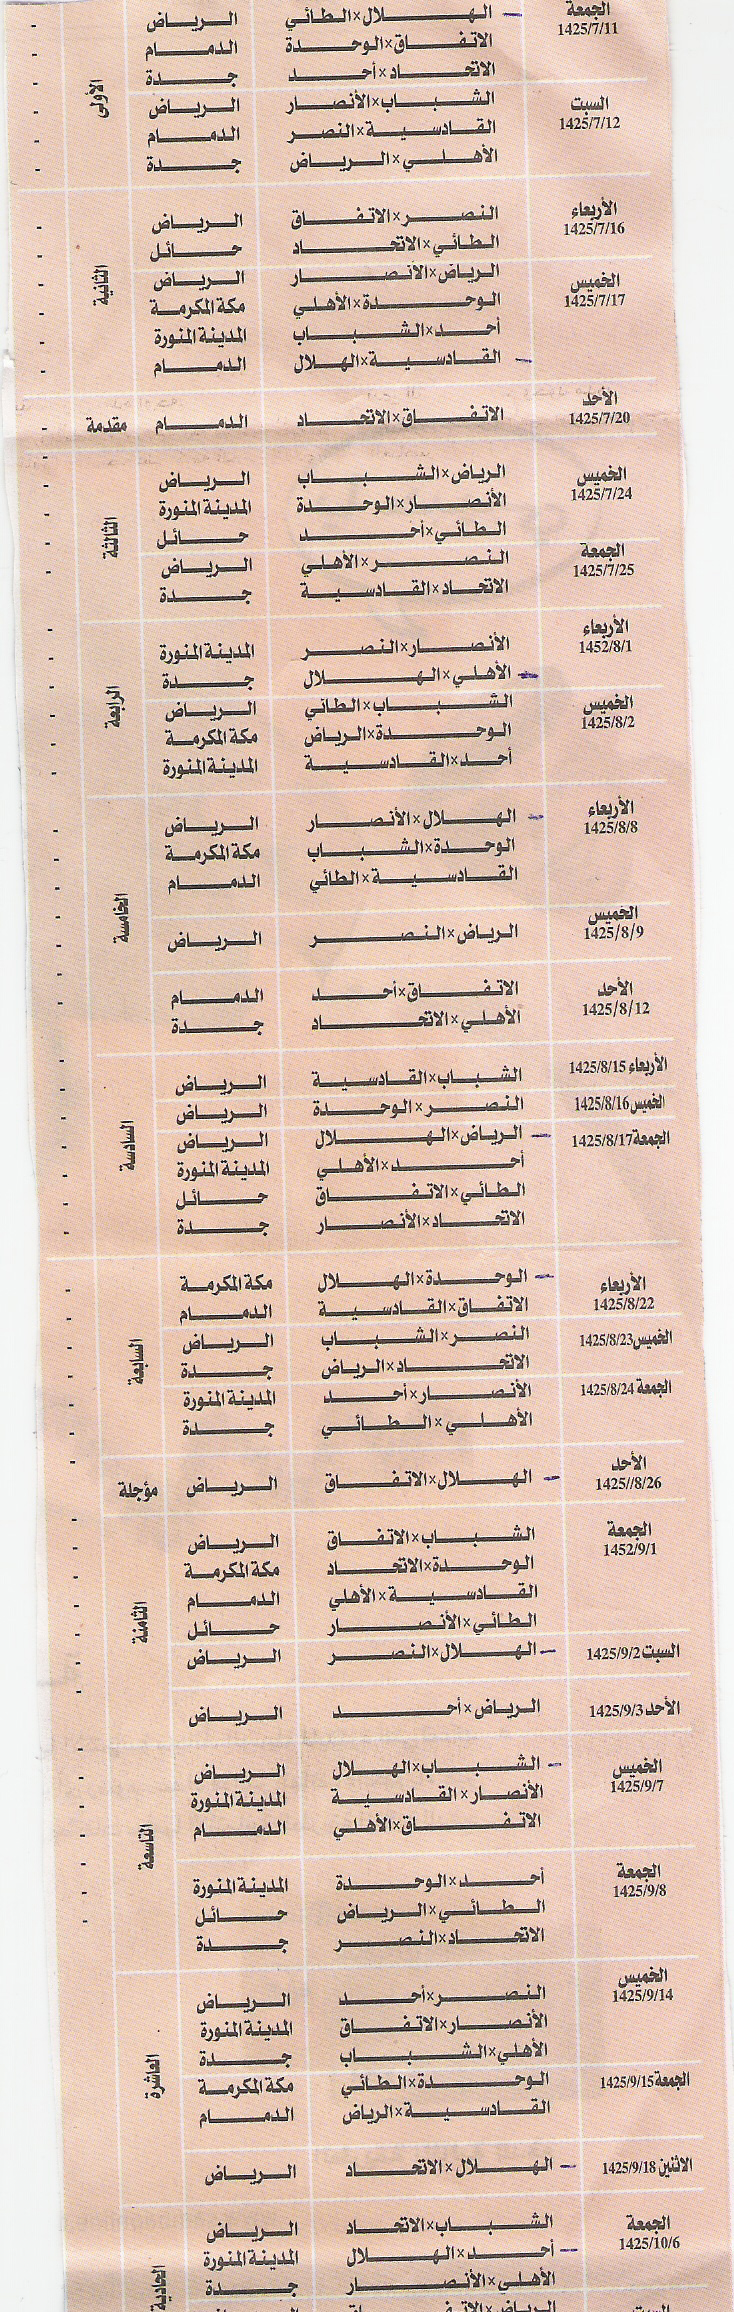 الجمعة 1425/7/11 الهلال×الطائي الرياض -
الاتفاق×الوحدة الدمام -
الاتحاد×أحد جدة -
الأولى
السبت 1425/7/12 الشباب×الأنصار الرياض -
القادسية×النصر الدمام -
الأهلي×الرياض جدة -
الأربعاء 1425/7/16 النصر×الاتفاق الرياض -
الطائي×الاتحاد حائل -
الثانية
الخميس 1425/7/17 الرياض×الأنصار الرياض -
الوحدة×الأهلي مكة المكرمة -
أحد×الشباب المدينة المنورة -
القادسية×الهلال الدمام -
الأحد 1425/7/20 الاتفاق×الاتحاد الدمام مقدمة -
الخميس 1425/7/24 الرياض×الشباب الرياض -
الأنصار×الوحدة المدينة المنورة -
الطائي×أحد حائل -
الثالثة
الجمعة 1425/7/25 النصر×الأهلي الرياض -
الاتحاد×القادسية جدة -
الأربعاء 1452/8/1 الأنصار×النصر المدينة المنورة -
الأهلي×الهلال جدة -
الرابعة
الخميس 1425/8/2 الشباب×الطائي الرياض -
الوحدة×الرياض مكة المكرمة -
أحد×القادسية المدينة المنورة -
الأربعاء 1425/8/8 الهلال×الأنصار الرياض -
الوحدة×الشباب مكة المكرمة -
القادسية×الطائي الدمام -
الخامسة
الخميس 1425/8/9 الرياض×النصر الرياض -
الأحد 1425/8/12 الاتفاق×أحد الدمام -
الأهلي×الاتحاد جدة -
الأربعاء 1425/8/15 الشباب×القادسية الرياض -
الخميس 1425/8/16 النصر×الوحدة الرياض -
السادسة
الجمعة 1425/8/17 الرياض×الهلال الرياض -
أحد×الأهلي المدينة المنورة -
الطائي×الاتفاق حائل -
الاتحاد×الأنصار جدة -
الأربعاء 1425/8/22 الوحدة×الهلال مكة المكرمة -
الاتفاق×القادسية الدمام -
السابعة
الخميس 1425/8/23 النصر×الشباب الرياض -
الاتحاد×الرياض جدة -
الجمعة 1425/8/24 الأنصار×أحد المدينة المنورة -
الأهلي×الطائي جدة -
الأحد 1425//8/26 الهلال×الاتفاق الرياض مؤجلة -
الجمعة 1452/9/1 الشباب×الاتفاق الرياض -
الوحدة×الاتحاد مكة المكرمة -
القادسية×الأهلي الدمام -
الطائي×الأنصار حائل -
الثامنة
السبت 1425/9/2 الهلال×النصر الرياض -
الأحد 1425/9/3 الرياض×أحد الرياض -
الخميس 1425/9/7 الشباب×الهلال الرياض -
الأنصار×القادسية المدينة المنورة -
الاتفاق×الأهلي الدمام -
التاسعة
الجمعة 1425/9/8 أحد×الوحدة المدينة المنورة -
الطائي×الرياض حائل -
الاتحاد×النصر جدة
الخميس 1425/9/14 النصر×أحد الرياض
الأنصار×الاتفاق المدينة المنورة
الأهلي×الشباب جدة
العاشرة
الجمعة 1425/9/15 الوحدة×الطائي مكة المكرمة
القادسية×الرياض الدمام
الاثنين 1425/9/18 الهلال×الاتحاد الرياض
الجمعة 1425/10/6 الشباب×الاتحاد الرياض
أحد×الهلال المدينة المنورة
الحادية
الأهلي×الأنصار جدة